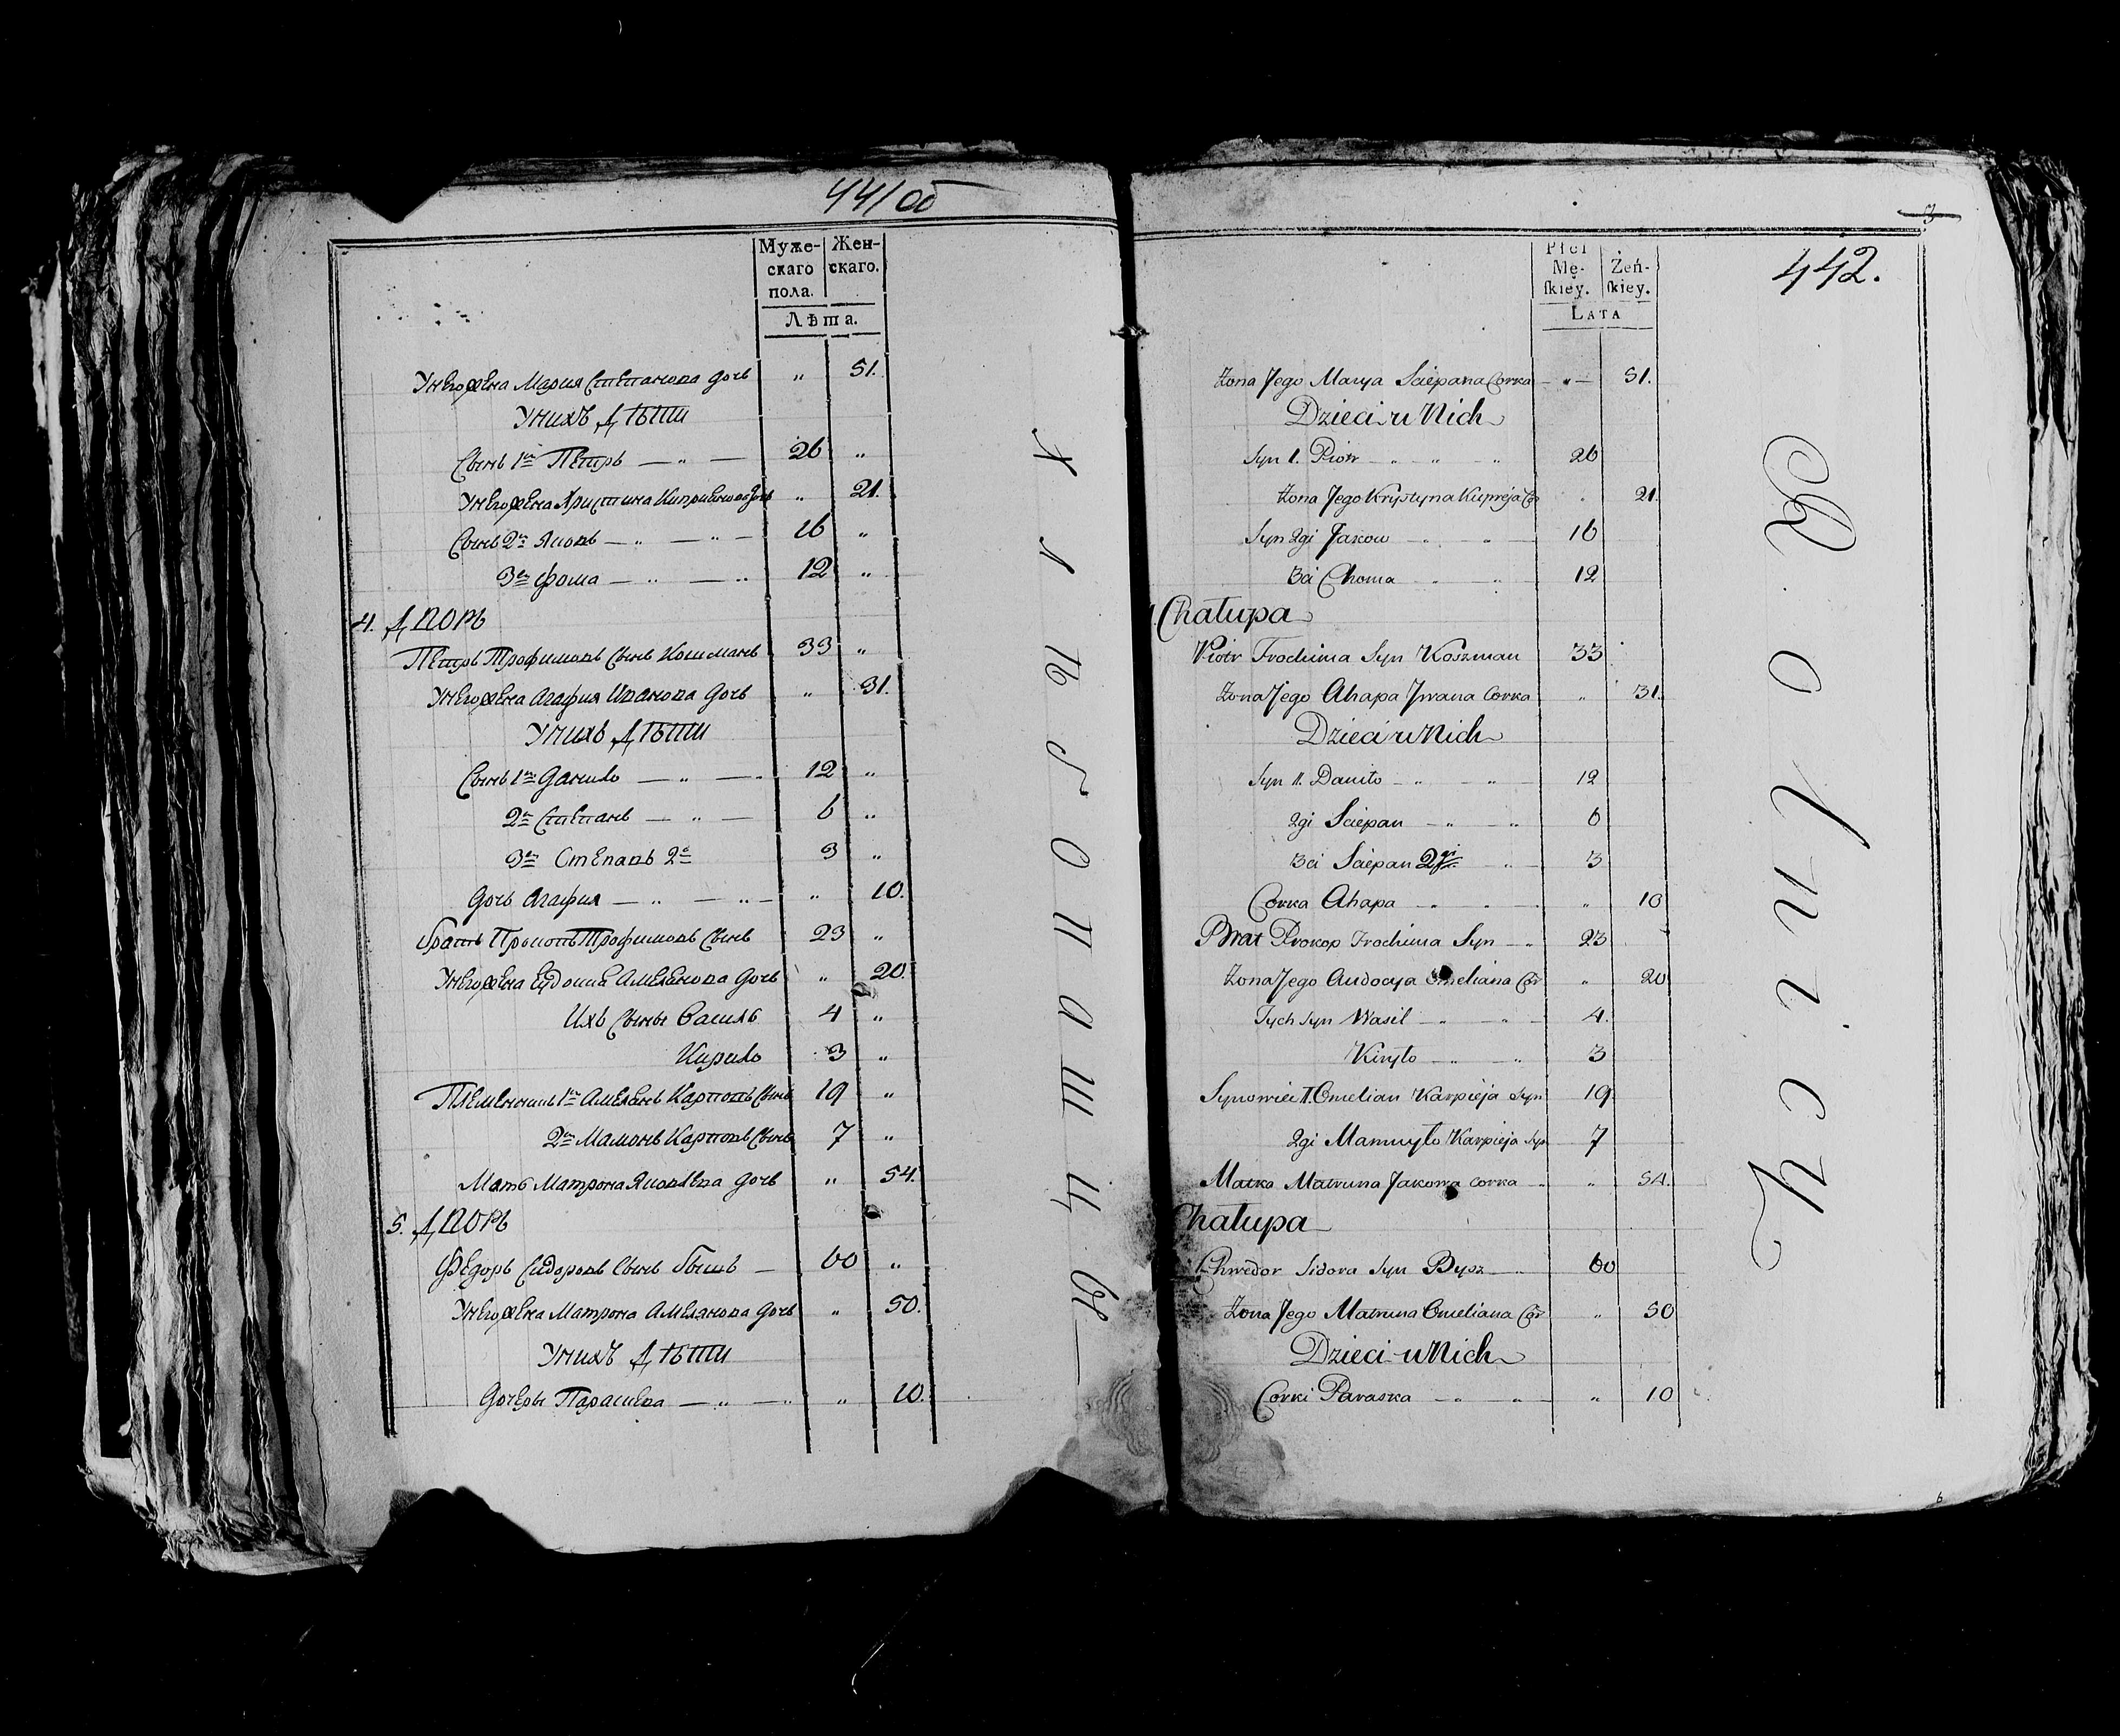 441/об
Муже-
скаго
пола.
Жен-
скаго.
Лѣта.
У него жена Мария Степанова дочь " 51.
У нихъ дѣти
Сынъ 1й Петръ — " — 26 "
У него жена Христина Киприянова дочь " 21.
Сынъ 2й Яковъ — " — " — 16 "
3й Фома — " — " 12 "
4. Дворъ
Петръ Трофимовъ Сынъ Кошманъ 33 "
У него жена Агафия Иванова дочь " 31.
У нихъ дѣти
Сынъ 1й Данило — " — " 12 "
2й Степанъ — " — 6 "
3й Степанъ 2й 3 "
Дочь Агафия — " — " — " 10.
Братъ Прокопъ Трофимовъ Сынъ 23 "
У него жена Евдокия Амельянова дочь " 20.
Ихъ Сыны Василь 4 "
Кирило 3 "
Племянникъ 1й Амелянъ Карповъ Сынъ 19 "
2й Мамонъ Карповъ Сынъ 7 "
Мать Матрона Яковлева дочь " 54.
5. Дворъ
Федоръ Сидоровъ Сынъ Бышъ — 60 "
У него жена Матрона Амелянова дочь " 50.
У нихъ дѣти
Дочеры Парасковa — " — " " 10.
Хлѣбопашцы
3
442.
Płci
Mę-
skiey.
Żeń-
skiey.
LATA
Żona Jego Marya Sciepana Corka — " — 51.
Dzieci u Nich
Syn 1. Piotr " " " 26
Żona Jego Krystyna Kupreja Cor " 21.
Syn 2gi Jakow " " 16
3ci Choma " " 12
Chałupa
Piotr Trochima Syn Koszman 33
Żona Jego Ahapa Jwana Corka " 31.
Dzieci u Nich
Syn 1. Daniło " " 12
2gi Sciepan " " 6
3ci Sciepan 2gi " 3
Corka Ahapa " " " 10
Brat Prokop Trochima Syn " 23
Żona Jego Audocya Omeliana Cor " 20
Tych Syn Wasil " " 4.
Kiryło " " 3
Synowiec 1. Omelian Karpieja Syn 19
2gi Mamuyło Karpieja Syn 7
Matka Matruna Jakowa Corka " " 54.
Chałupa
Chwedor Sidora Syn Bysz " 60
Żona Jego Matruna Omeliana Cor " 50
Dzieci u Nich
Corki Paraska " " " 10
Rolnicy
6